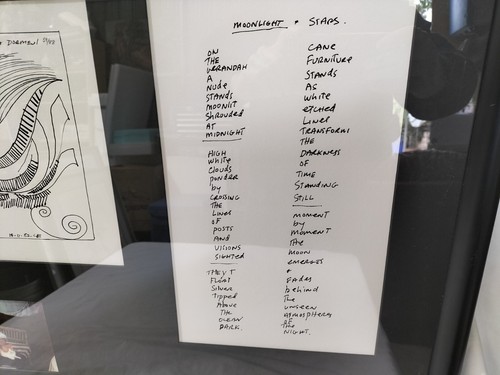 MOONLIGHT + STARS.
ON
THE
VERANDAH
A
Nude
STANDS
MOONLIT
Shrouded
AT
MIDNIGHT
HIGH
White
Clouds
ponder
by
CROSSING
THE
Lines
OF
POSTS
AND
VISIONS
SIGHTED
THEY
FLOAT
Silver
Tipped
Above
The
OCEAN
DARK.
CANE
FURNITURE
STANDS
AS
White
etched
Lines
TRANSFORM
THE
DARKNESS
OF
TIME
STANDING
STILL
MOMENT
by
MOMENT
The
MOON
emerges
+
FADES
behind
The
UNSEEN
ATMOSPHERE
OF
The
NIGHT.